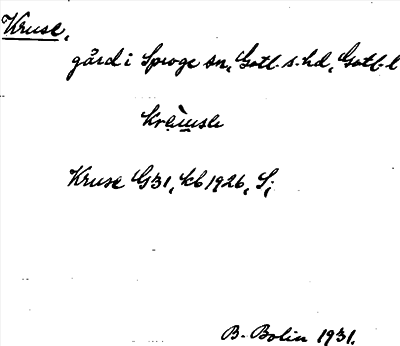 Kruse,
gård i Sproge sn, Gotl. s. hd, Gotl. l
Kruse G31, kb 1926, S;
B. Bolin 1931.